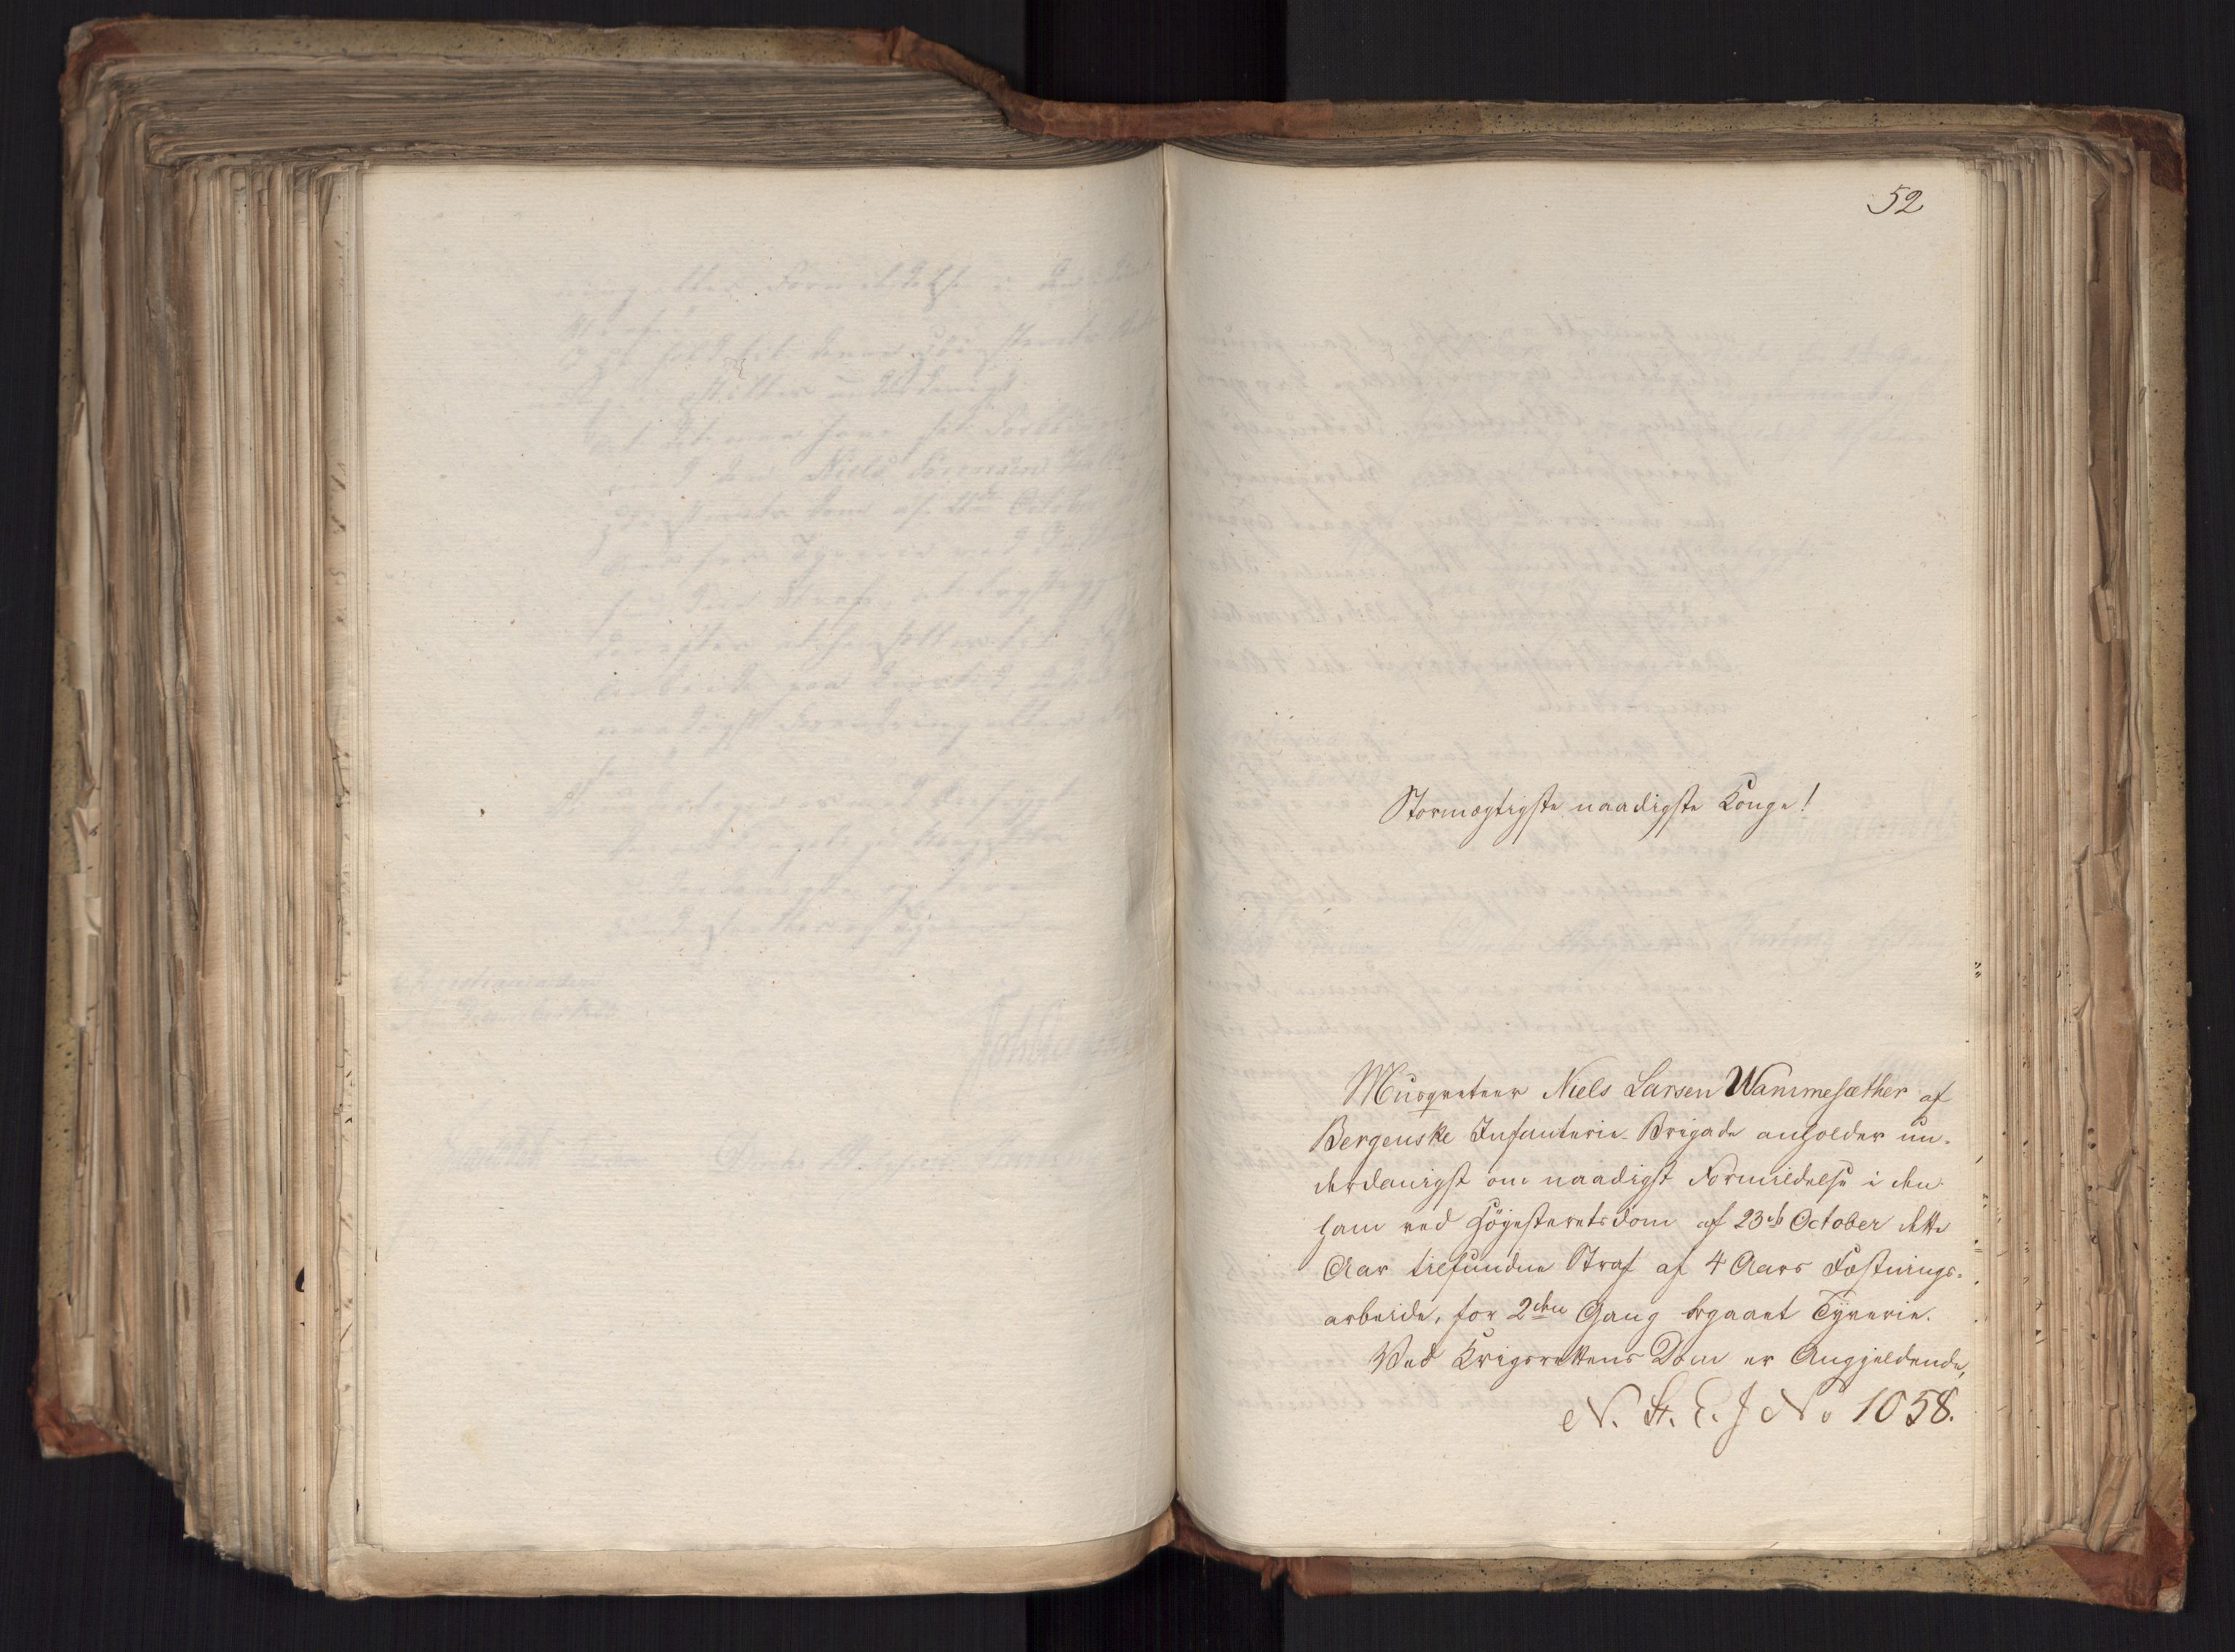 52
Stormægtigste naadigste Konge!
Musqueteer Niels Larsen Wammesæther af
Bergenske Infanterie-Brigade anholder un-
derdanigst om naadigst Formildelse i den
ham ved Höyesteretsdom af 23de October dette
Aar tilfundne Straf af 4 Aars Fæstnings-
arbeide, for 2den Gang begaaet Tyverie.
Ved Krigsrettens Dom er Angjeldende,
N. St. E. J No 1058.